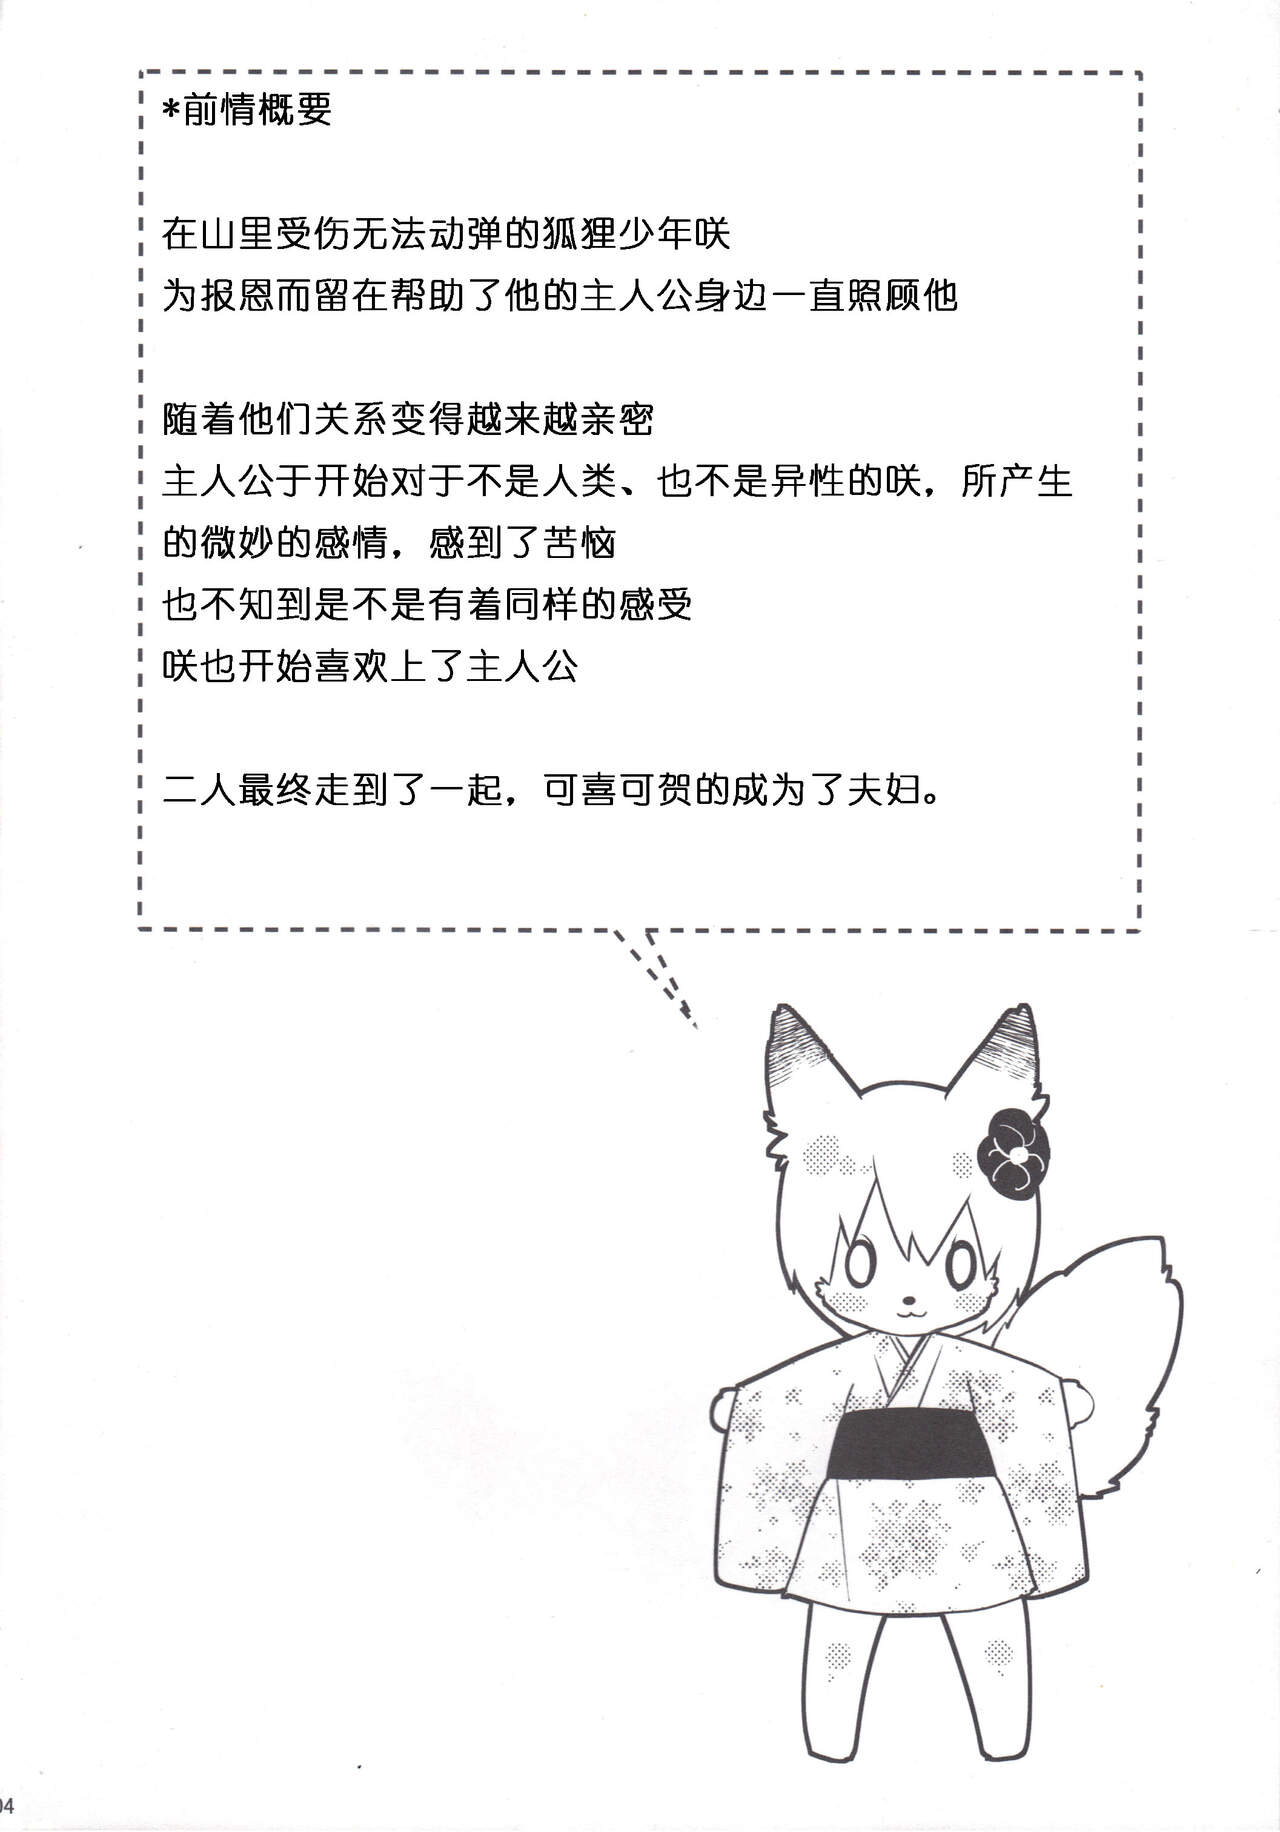 *前情概要
在山里受伤无法动弹的狐狸少年咲
为报恩而留在帮助了他的主人公身边一直照顾他
随着他们关系变得越来越亲密
主人公于开始对于不是人类、也不是异性的咲，所产生
的微妙的感情，感到了苦恼
也不知到是不是有着同样的感受
咲也开始喜欢上了主人公
二人最终走到了一起，可喜可贺的成为了夫妇。
04